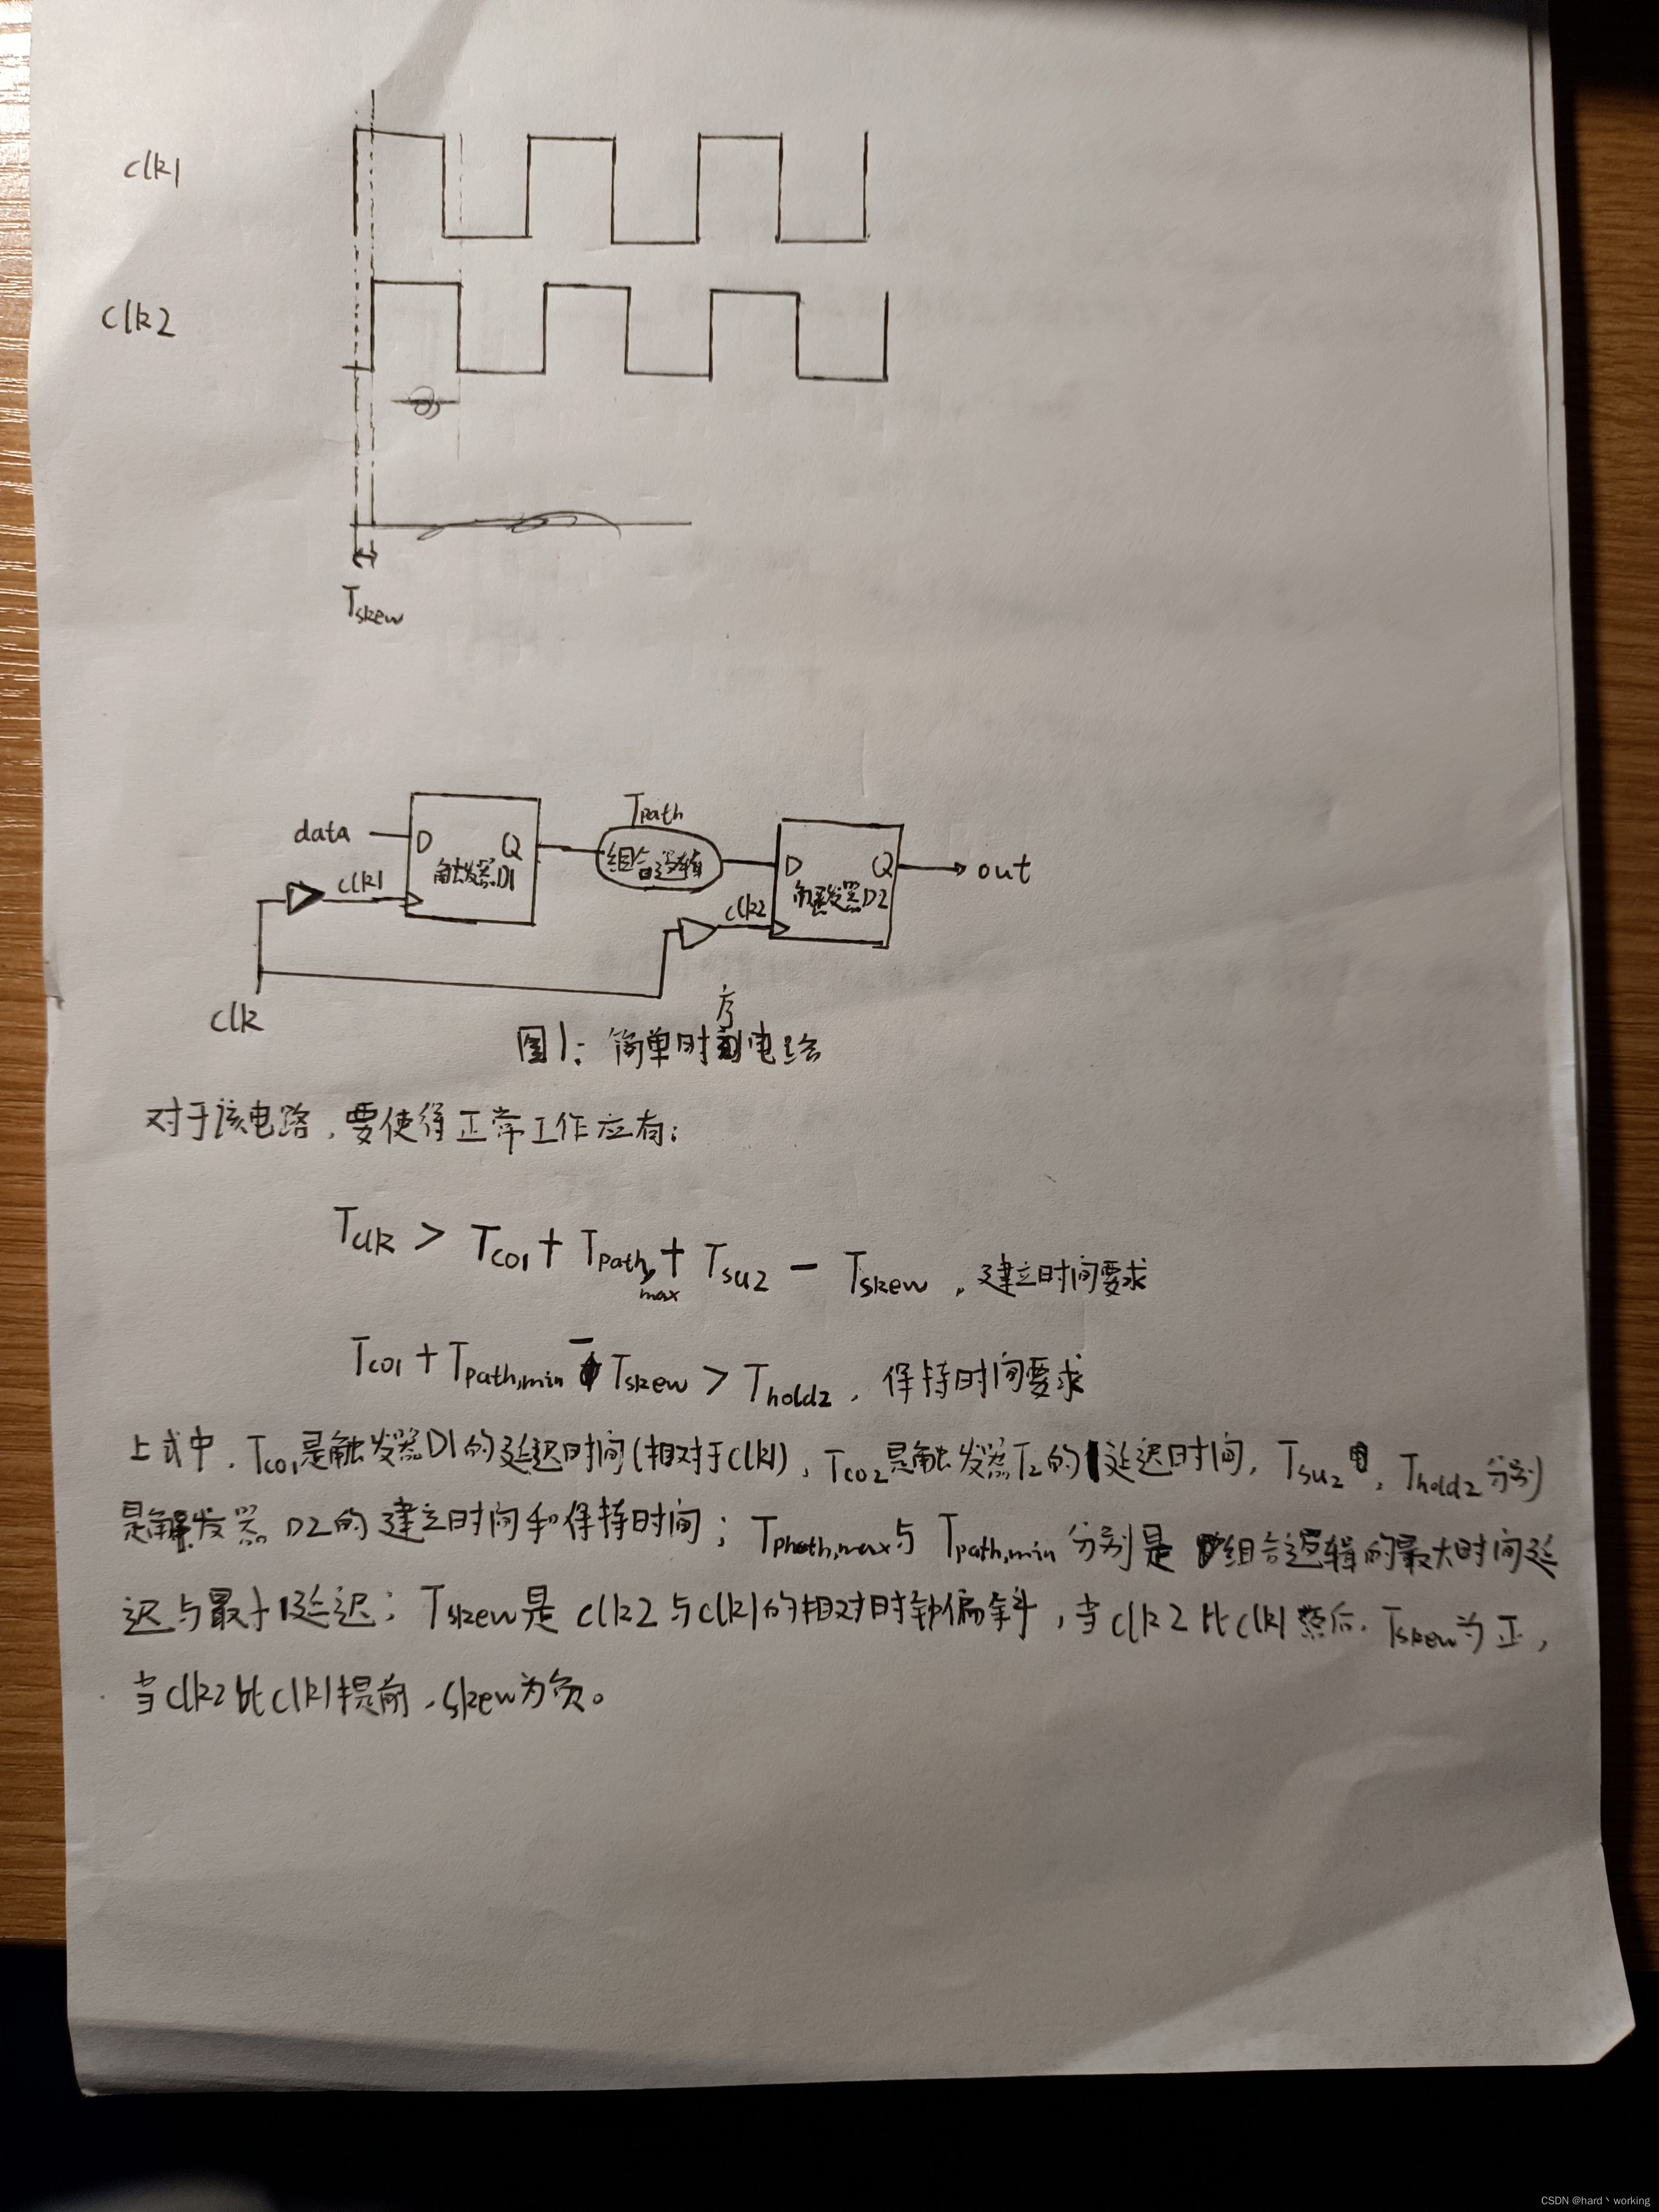 clk1
clk2
Tskew
Tpath
data D Q 组合逻辑 D Q out
触发器D1 触发器D2
clk1 clk2
clk
图1: 简单时序电路
对于该电路，要使得正常工作应有:
Tclk > Tco1 + Tpath,max + Tsu2 - Tskew，建立时间要求
Tco1 + Tpath,min - Tskew > Thold2，保持时间要求
上式中，Tco1是触发器D1的延迟时间(相对于clk1)，Tco2是触发器T2的延迟时间，Tsu2，Thold2分别
是触发器D2的建立时间和保持时间；Tphath,max与Tpath,min分别是组合逻辑的最大时间延
迟与最小延迟；Tskew是clk2与clk1的相对时钟偏斜，当clk2比clk1落后，Tskew为正，
当clk2比clk1提前，skew为负。
CSDN @hard丶working